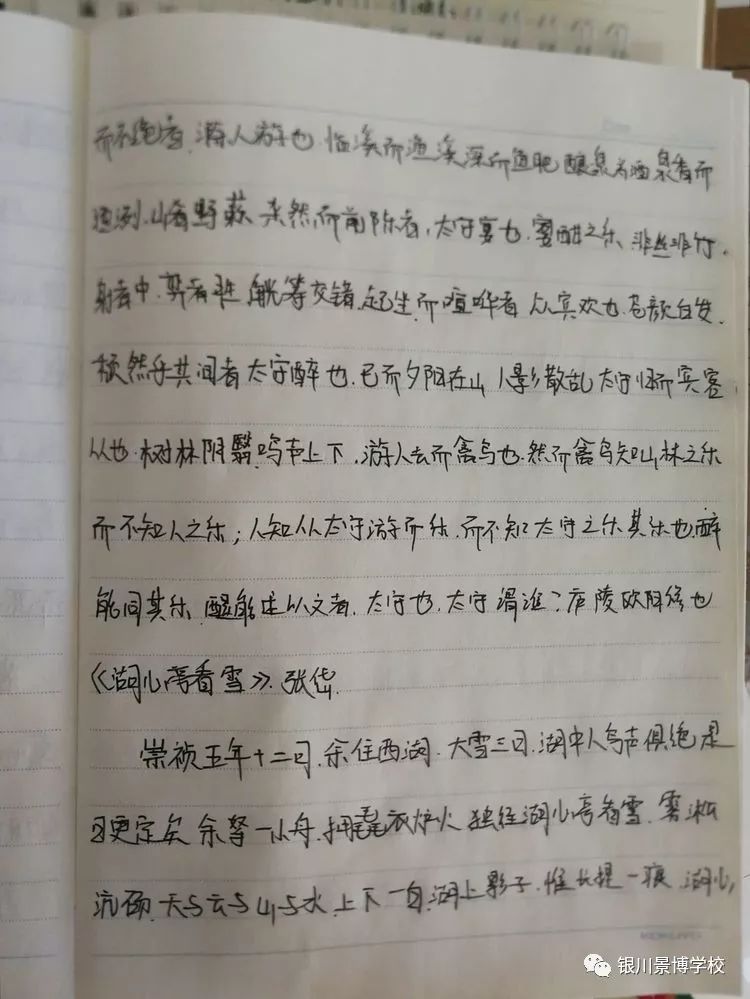 而不绝者,滁人游也.临溪而渔溪深而鱼肥 酿泉为酒 泉香而
酒洌.山肴野蔌 杂然而前陈者,太守宴也.宴酣之乐 非丝非竹.
射者中.弈者胜 觥筹交错.起坐而喧哗者 众宾欢也.苍颜白发.
颓然乎其间者 太守醉也.已而夕阳在山 人影散乱 太守归而宾客
从也.树林阴翳.鸣声上下.游人去而禽鸟也.然而禽鸟知山林之乐
而不知人之乐;人知从太守游而乐.而不知太守之乐其乐也.醉
能同其乐 醒能述以文者.太守也.太守谓谁?庐陵欧阳修也
《湖心亭看雪》.张岱
崇祯五年十二月.余住西湖.大雪三日.湖中人鸟声俱绝 是
日更定矣 余拏一小舟.拥毳衣炉火 独往湖心亭看雪.雾凇
沆砀.天与云与山与水.上下一白.湖上影子.惟长堤一痕 湖心
银川景博学校